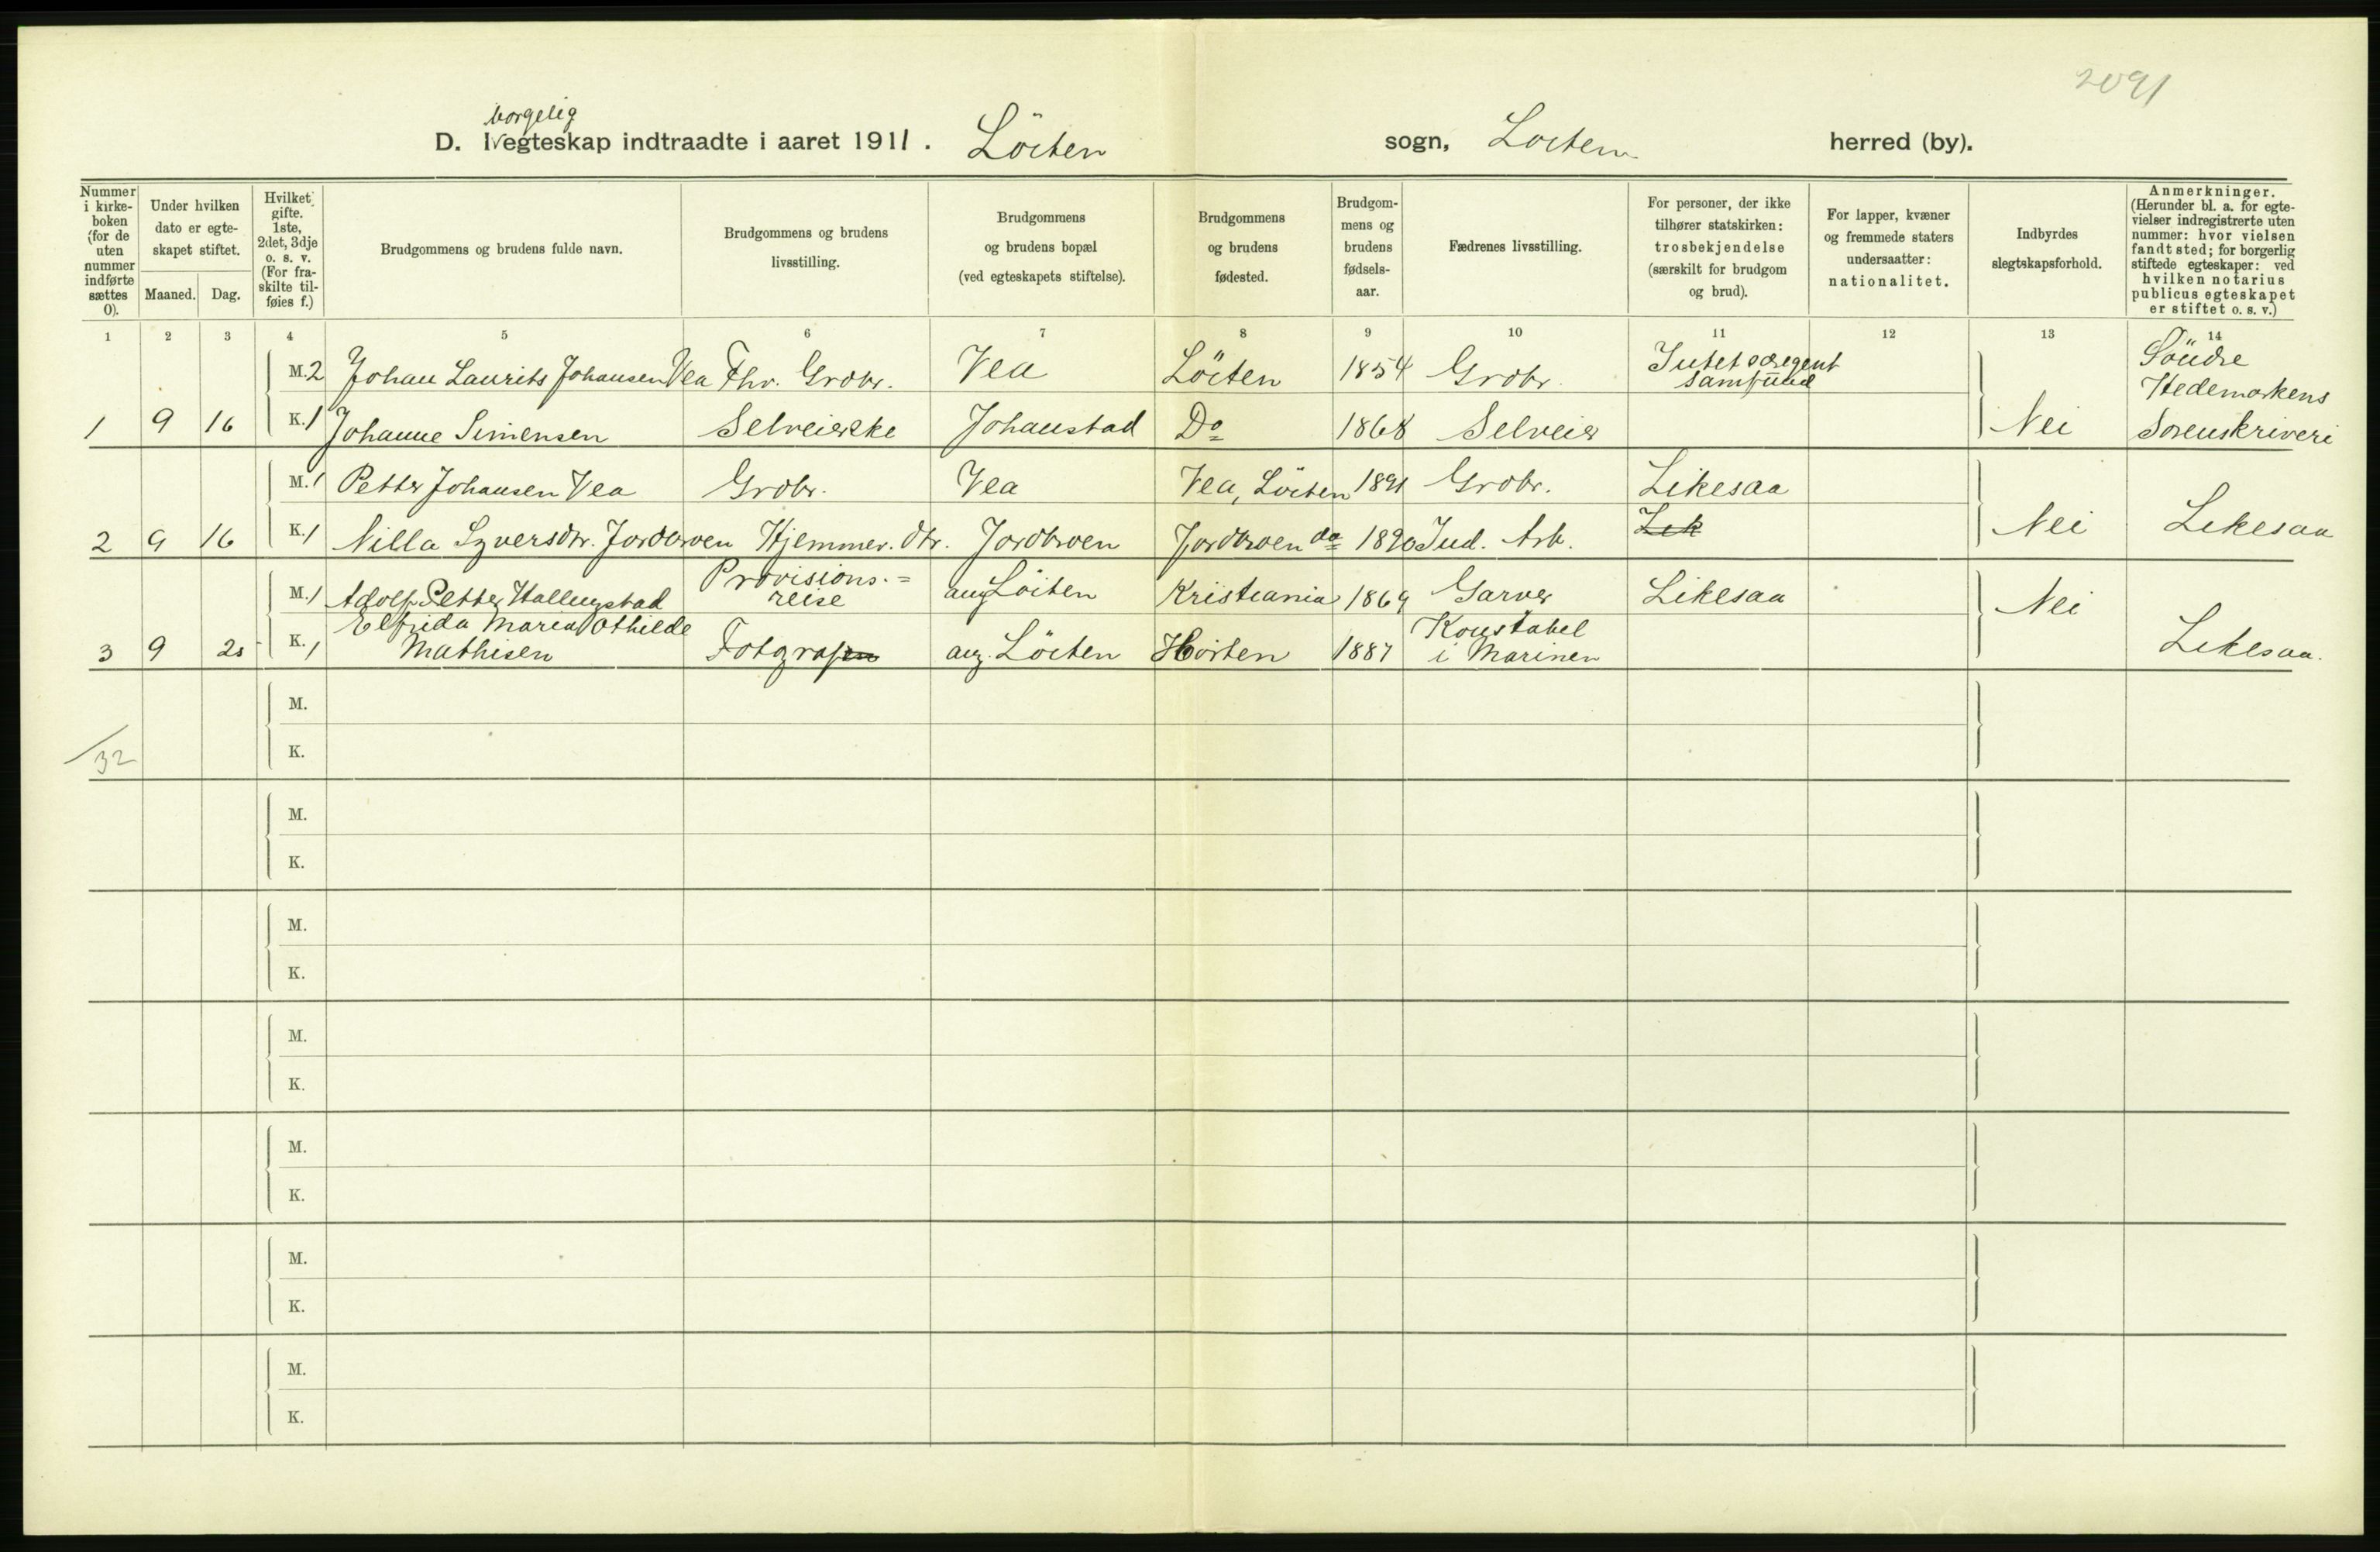 2091
borgelig
D. Ivegteskap indtraadte i aaret 1911. Löiten sogn, Loiten herred (by).
Nummer i kirke-boken (for de uten nummer indførte sættes 0).
Under hvilken dato er egte-skapet stiftet.
Maaned. Dag.
Hvilket gifte. 1ste, 2det, 3dje o. s. v. (For fra-skilte til-føies f.)
Brudgommens og brudens fulde navn.
Brudgommens og brudens livsstilling.
Brudgommens og brudens bopæl (ved egteskapets stiftelse).
Brudgommens og brudens fødested.
Brudgom-mens og brudens fødsels-aar.
Fædrenes livsstilling.
For personer, der ikke tilhører statskirken: trosbekjendelse (særskilt for brudgom og brud).
For lapper, kvæner og fremmede staters undersaatter: nationalitet.
Indbyrdes slegtskapsforhold.
Anmerkninger. (Herunder bl. a. for egte-vielser indregistrerte uten nummer: hvor vielsen fandt sted; for borgerlig stiftede egteskaper: ved hvilken notarius publicus egteskapet er stiftet o. s. v.)
1 2 3 4 5 6 7 8 9 10 11 12 13 14
M. 2 Johan Laurits Johansen Vea Fhv. Grdbr. Vea Löiten 1854 Grdbr. Intet særegent samfund Söndre Hedemarkens
1 9 16 K. 1 Johanne Simensen Selveierske Johanstad Do 1868 Selveier Nei Sorenskriveri
M. 1 Petter Johansen Vea Grdbr. Vea Vea, Löiten 1891 Grdbr. Likesaa
2 9 16 K. 1 Nilla Syversdtr. Jordbroen Hjemmev. dtr. Jordbroen Jordbroen do 1890 Ind. Arb. Lik Nei Likesaa
M. 1 Adolf Petter Hallingstad Provisions.=reise ang Löiten Kristiania 1869 Garver Likesaa Nei
3 9 2s K. 1 Elfrida Maria Othilde Mathisen Fotografen ang. Löiten Horten 1887 Konstabel i Marinen Likesaa.
M.
K.
32
M.
K.
M.
K.
M.
K.
M.
K.
M.
K.
M.
K.